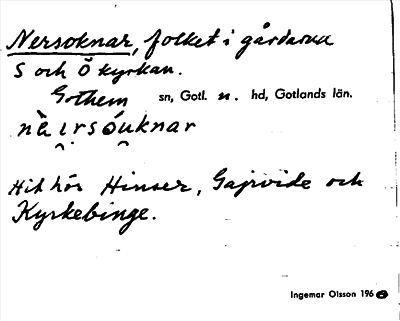 Nersoknar, folket i gårdarna
S och Ö kyrkan.
Gothem sn, Gotl. n. hd, Gotlands län.
nè̯ırsó̯uknar
Hit hör Hinser, Gajrvide och
Kyrkebinge.
Ingemar Olsson 196